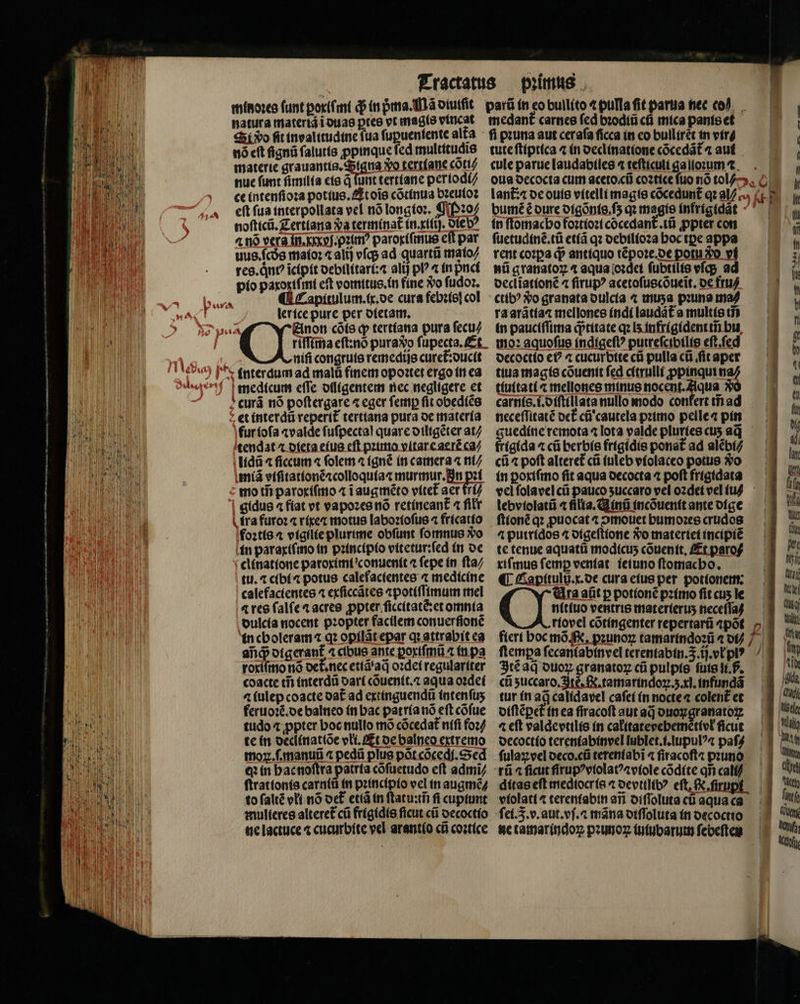 Tractatus primus
minores sunt poxismi q̃ in p̃ma. Mã diuisit
natura materiã ĩ duas ptes vt magis vincat
Si ꝟo fit inualitudine sua supueniente alta
nõ est signũ salutis ꝓpinque sed multitudis
materie grauantis. Signa ꝟo tertiane cõti⸗
nue sunt similia eis q̃ sunt tertiane periodi⸗
ce intensiora potius. Et oĩs cõtinua breuior
est sua interpollata vel nõ longior. ¶ Pro⸗
nosticũ. Tertiana ꝟa terminat̃ in.xiiij. dieb⁹
⁊ nõ vera in.xxxvj. prim⁹ paroxismus est par
uus. scd̃s maior ⁊ alij vsq̃ ad quartũ maio⸗
res. qñt⁹ ĩcipit debilitari: ⁊ alij pl⁹ ⁊ in pñci
pio paxoxismi est vomitus. in fine ꝟo sudor.
¶ Capitulum. ix. de cura febris col
lerice pure per dietam.
Cũ non cõis q̃ tertiana pura secu⸗
rissima est: nõ pura ꝟo suspecta. Et
nisi congruis remedijs curet̃: ducit
interdum ad malũ finem oportet ergo in ea
medicum esse diligentem nec negligere et
curã nõ postergare ⁊ eger semp sit obediẽs
et interdũ reperit̃ tertiana pura de materia
furiosa ⁊ valde suspecta! quare diligẽter at⸗
tendat ⁊ dieta eius est primo vitare aerẽ ca⸗
lidũ ⁊ siccum ⁊ solem ⁊ ignẽ in camera ⁊ ni⸗
miã visitationẽ ⁊ colloquia ⁊ murmur. In pri
mo tñ paroxismo ⁊ ĩ augmẽto vitet̃ aer fri⸗
gidus ⁊ fiat vt vapores nõ retineant̃ ⁊ silr
ira furor ⁊ rixe ⁊ motus laboriosus ⁊ fricatio
fortis ⁊ vigilie plurime obsunt somnus ꝟo
in paraxismo in principio vitetur: sed in de
clinatione paroximi ꝯuenit ⁊ sepe in sta⸗
tu. ⁊ cibi ⁊ potus calefacientes ⁊ medicine
calefacientes ⁊ exsiccãtes ⁊ potissimum mel
⁊ res salse ⁊ acres ꝓpter siccitatẽ: et omnia
dulcia nocent propter facilem conuersionẽ
in choleram ⁊ qr opilãt epar qr attrahit ea
añq̃ digerant̃ ⁊ cibus ante poxismũ ⁊ in pa
roxismo nõ det̃. nec etiã aq̃ ordei regulariter
coacte tñ interdũ dari cõuenit. ⁊ aqua ordei
⁊ iulep coacte dat̃ ad extinguendũ intensuʒ
feruorẽ. de balneo in hac patria nõ est cõsue
tudo ⁊ ꝓpter hoc nullo mõ cõcedat̃ nisi for⸗
te in declinatiõe vli. Et de balneo extremo
morꝝ. s. manuũ ⁊ pedũ plus põt cõcedi. Sed
qr in hac nostra patria cõsuetudo est admi⸗
strationis carniũ in principio vel in augmẽ⸗
to saltẽ vli nõ det̃ etiã in statu: tñ si cupiunt
mulieres alteret̃ cũ frigidis sicut cũ decoctio
ne lactuce ⁊ cucurbite vel arantio cũ cortice
parũ in eo bullito ⁊ pulla sit parua nec co⸗
medant̃ carnes sed brodiũ cũ mica panis et
si pruna aut cerasa sicca in eo bullirẽt in vir⸗
tute stiptica ⁊ in declinatione cõcedãt̃ ⁊ aui
cule parue laudabiles ⁊ testiculi gallorum ⁊
oua decocta cum aceto. cũ cortice suo nõ tol⸗
lant̃: ⁊ de ouis vitelli magis cõcedunt̃ qr al⸗
bumẽ ẽ dure digõnis. sʒ qr magis infrigidãt
in stomacho fortiori cõcedant̃. tũ ꝓpter con
suetudinẽ. tũ etiã qr debiliora hoc tpe appa
rent corpa q̃ antiquo tẽpore. de potu ꝟo vi
nũ granatorꝝ ⁊ aqua ordei subtilis vsq̃ ad
decliationẽ ⁊ sirup⁹ acetosus cõueit. de fru⸗
ctib⁹ ꝟo granata dulcia ⁊ muza pruna ma⸗
ra arãtia ⁊ mellones indi laudãt̃ a multis tñ
in paucissima q̃titate qr lʒ infrigident tñ hu
mor aquosus indigest⁹ putrescibilis est. sed
decoctio ei⁹ ⁊ cucurbite cũ pulla cũ fit aper
tiua magis cõuenit sed citrulli ꝓpinqui na⸗
tiuitati ⁊ mellones minus nocent. Aqua ꝟo
carnis. i. distillata nullo modo confert tñ ad
necessitatẽ det̃ cũ cautela primo pelle ⁊ pin
guedine remota ⁊ lota valde pluries cuʒ aq̃
frigida ⁊ cũ herbis frigidis ponat̃ ad alẽbi⸗
cũ ⁊ post alteret̃ cũ iuleb violaceo potus ꝟo
in poxismo sit aqua decocta ⁊ post frigidata
vel sola vel cũ pauco zuccaro vel ordei vel iu⸗
leb violatũ ⁊ silia. Vinũ incõuenit ante dige
stionẽ qr ꝓuocat ⁊ ꝓmouet humores crudos
⁊ putridos ⁊ digestione ꝟo materiei incipiẽ
te tenue aquatũ modicuʒ cõuenit. Et paro⸗
xismus semp veniat ieiuno stomacho.
¶ Capitulũ. x. de cura eius per potionem:
Cura aũt p potionẽ primo sit cuʒ le
nitiuo ventris materie ruʒ necessa⸗
rio vel cõtingenter repertarũ ⁊ põt
fieri hoc mõ. ℞. prunorꝝ tamarindorũ ⁊ di⸗
stempa secaniabin vel tereniabin. ℥. ij. vl̓ pl⁹
Itẽ aq̃ duorꝝ granatorꝝ cũ pulpis suis li. ß.
cũ zuccaro. Itẽ. ℞. tamarindorꝝ. ʒ. xl. infundã
tur in aq̃ calida vel casei in nocte ⁊ colent̃ et
distẽpet̃ in ea siracost aut aq̃ duorꝝ granatorꝝ
⁊ est valde vtilis in caliditate vehemẽti vl̓ sicut
decoctio tereniabin vel iublet. i. lupul⁹ ⁊ pas⸗
sularꝝ vel deco. cũ tereniabi ⁊ siracost ⁊ pruno
rũ ⁊ sicut sirup⁹ violat⁹ ⁊ viole cõdite qñ cali⸗
ditas est mediocris ⁊ de vtilib⁹ est. ℞. sirupi
violati ⁊ tereniabin añ dissoluta cũ aqua ca
sei. ℥. v. aut. vj. ⁊ mãna dissoluta in decoctio
ne tamarindorꝝ prunorꝝ iuiubarum sebesten